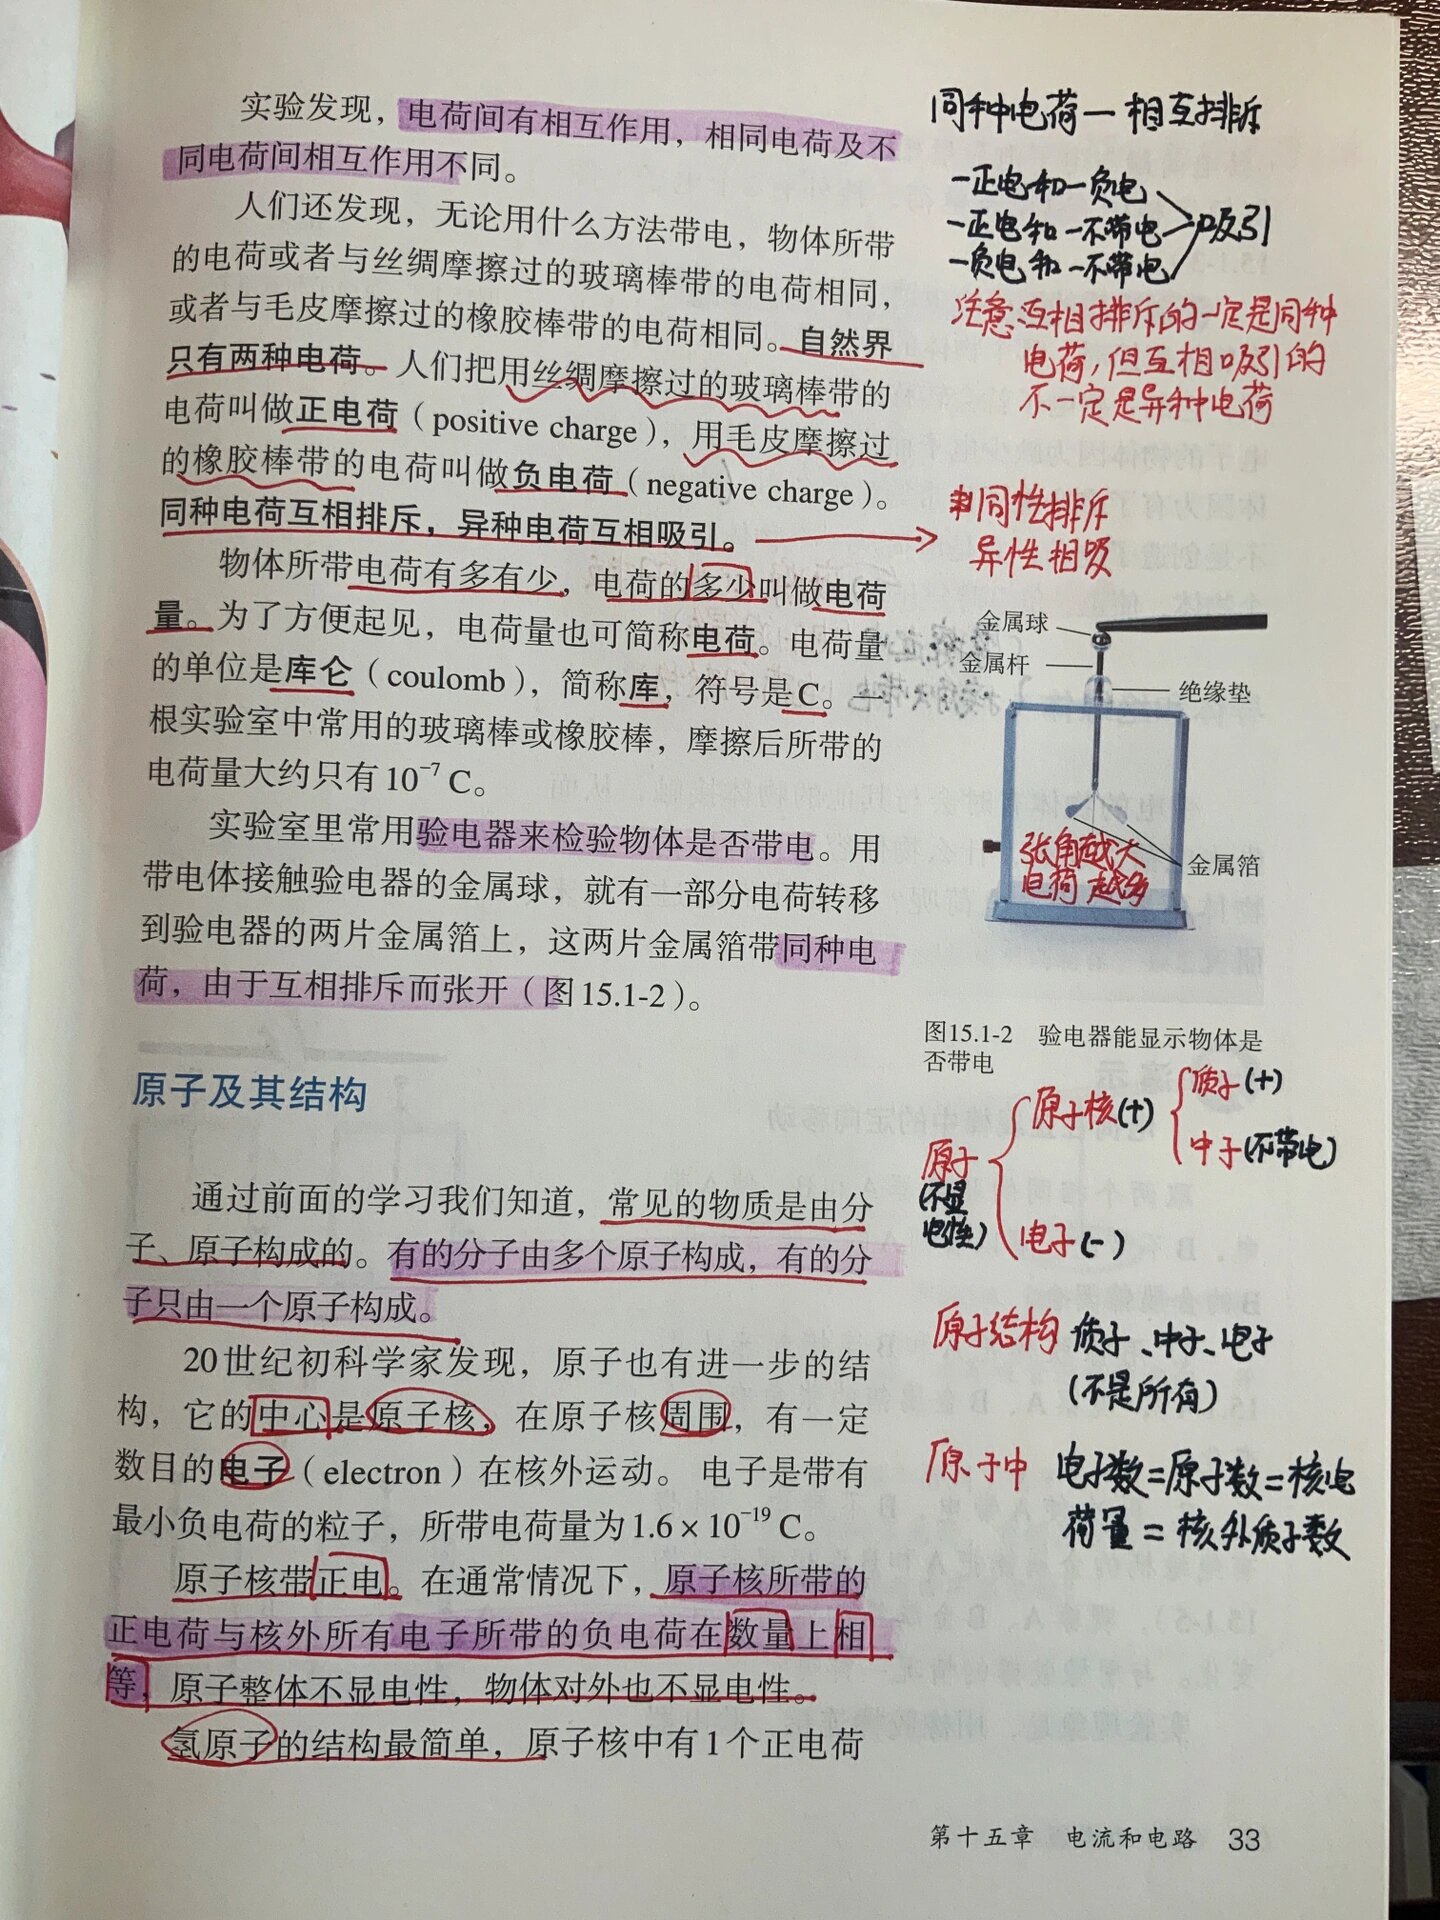 实验发现，电荷间有相互作用，相同电荷及不
同电荷间相互作用不同。
人们还发现，无论用什么方法带电，物体所带
的电荷或者与丝绸摩擦过的玻璃棒带的电荷相同，
或者与毛皮摩擦过的橡胶棒带的电荷相同。自然界
只有两种电荷。人们把用丝绸摩擦过的玻璃棒带的
电荷叫做正电荷（positive charge），用毛皮摩擦过
的橡胶棒带的电荷叫做负电荷（negative charge）。
同种电荷互相排斥，异种电荷互相吸引。
物体所带电荷有多有少，电荷的多少叫做电荷
量。为了方便起见，电荷量也可简称电荷。电荷量
的单位是库仑（coulomb），简称库，符号是C。一
根实验室中常用的玻璃棒或橡胶棒，摩擦后所带的
电荷量大约只有10⁻⁷ C。
实验室里常用验电器来检验物体是否带电。用
带电体接触验电器的金属球，就有一部分电荷转移
到验电器的两片金属箔上，这两片金属箔带同种电
荷，由于互相排斥而张开（图15.1-2）。
原子及其结构
通过前面的学习我们知道，常见的物质是由分
子、原子构成的。有的分子由多个原子构成，有的分
子只由一个原子构成。
20世纪初科学家发现，原子也有进一步的结
构，它的中心是原子核，在原子核周围，有一定
数目的电子（electron）在核外运动。电子是带有
最小负电荷的粒子，所带电荷量为1.6×10⁻¹⁹ C。
原子核带正电。在通常情况下，原子核所带的
正电荷与核外所有电子所带的负电荷在数量上相
等，原子整体不显电性，物体对外也不显电性。
氢原子的结构最简单，原子核中有1个正电荷
同种电荷一相互排斥
一正电和一负电
一正电和一不带电 吸引
一负电和一不带电
注意:互相排斥的一定是同种
电荷,但互相吸引的
不一定是异种电荷
同性排斥
异性相吸
金属球
金属杆
绝缘垫
金属箔
张角越大
电荷越多
图15.1-2 验电器能显示物体是
否带电
原子
(不显
电性)
原子核(+)
质子(+)
中子(不带电)
电子(-)
原子结构 质子、中子、电子
(不是所有)
原子中 电子数=原子数=核电
荷量=核外质子数
第十五章 电流和电路 33